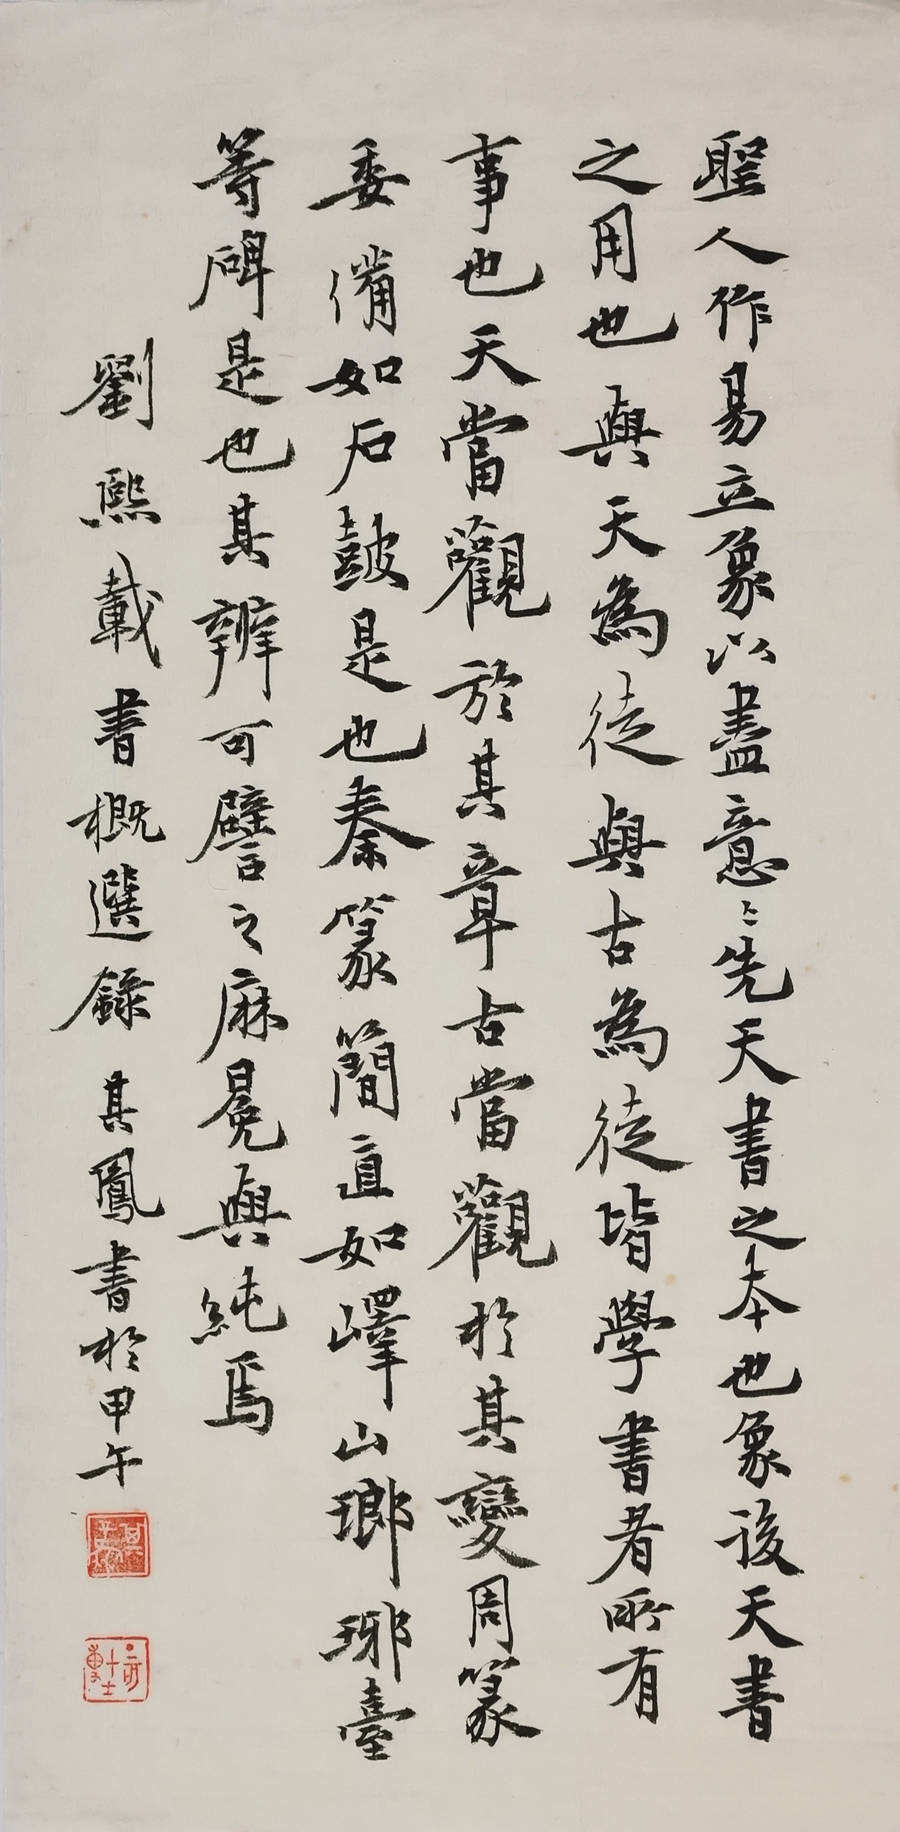 聖人作易立象以盡意〻先天書之本也象後天書
之用也與天為徒與古為徒皆學書者所有
事也天當觀於其章古當觀於其變周篆
委備如石鼓是也秦篆簡直如嶧山瑯琊臺
等碑是也其辨可譬之麻冕與純焉
劉熙載書概選錄其鳳書於甲午